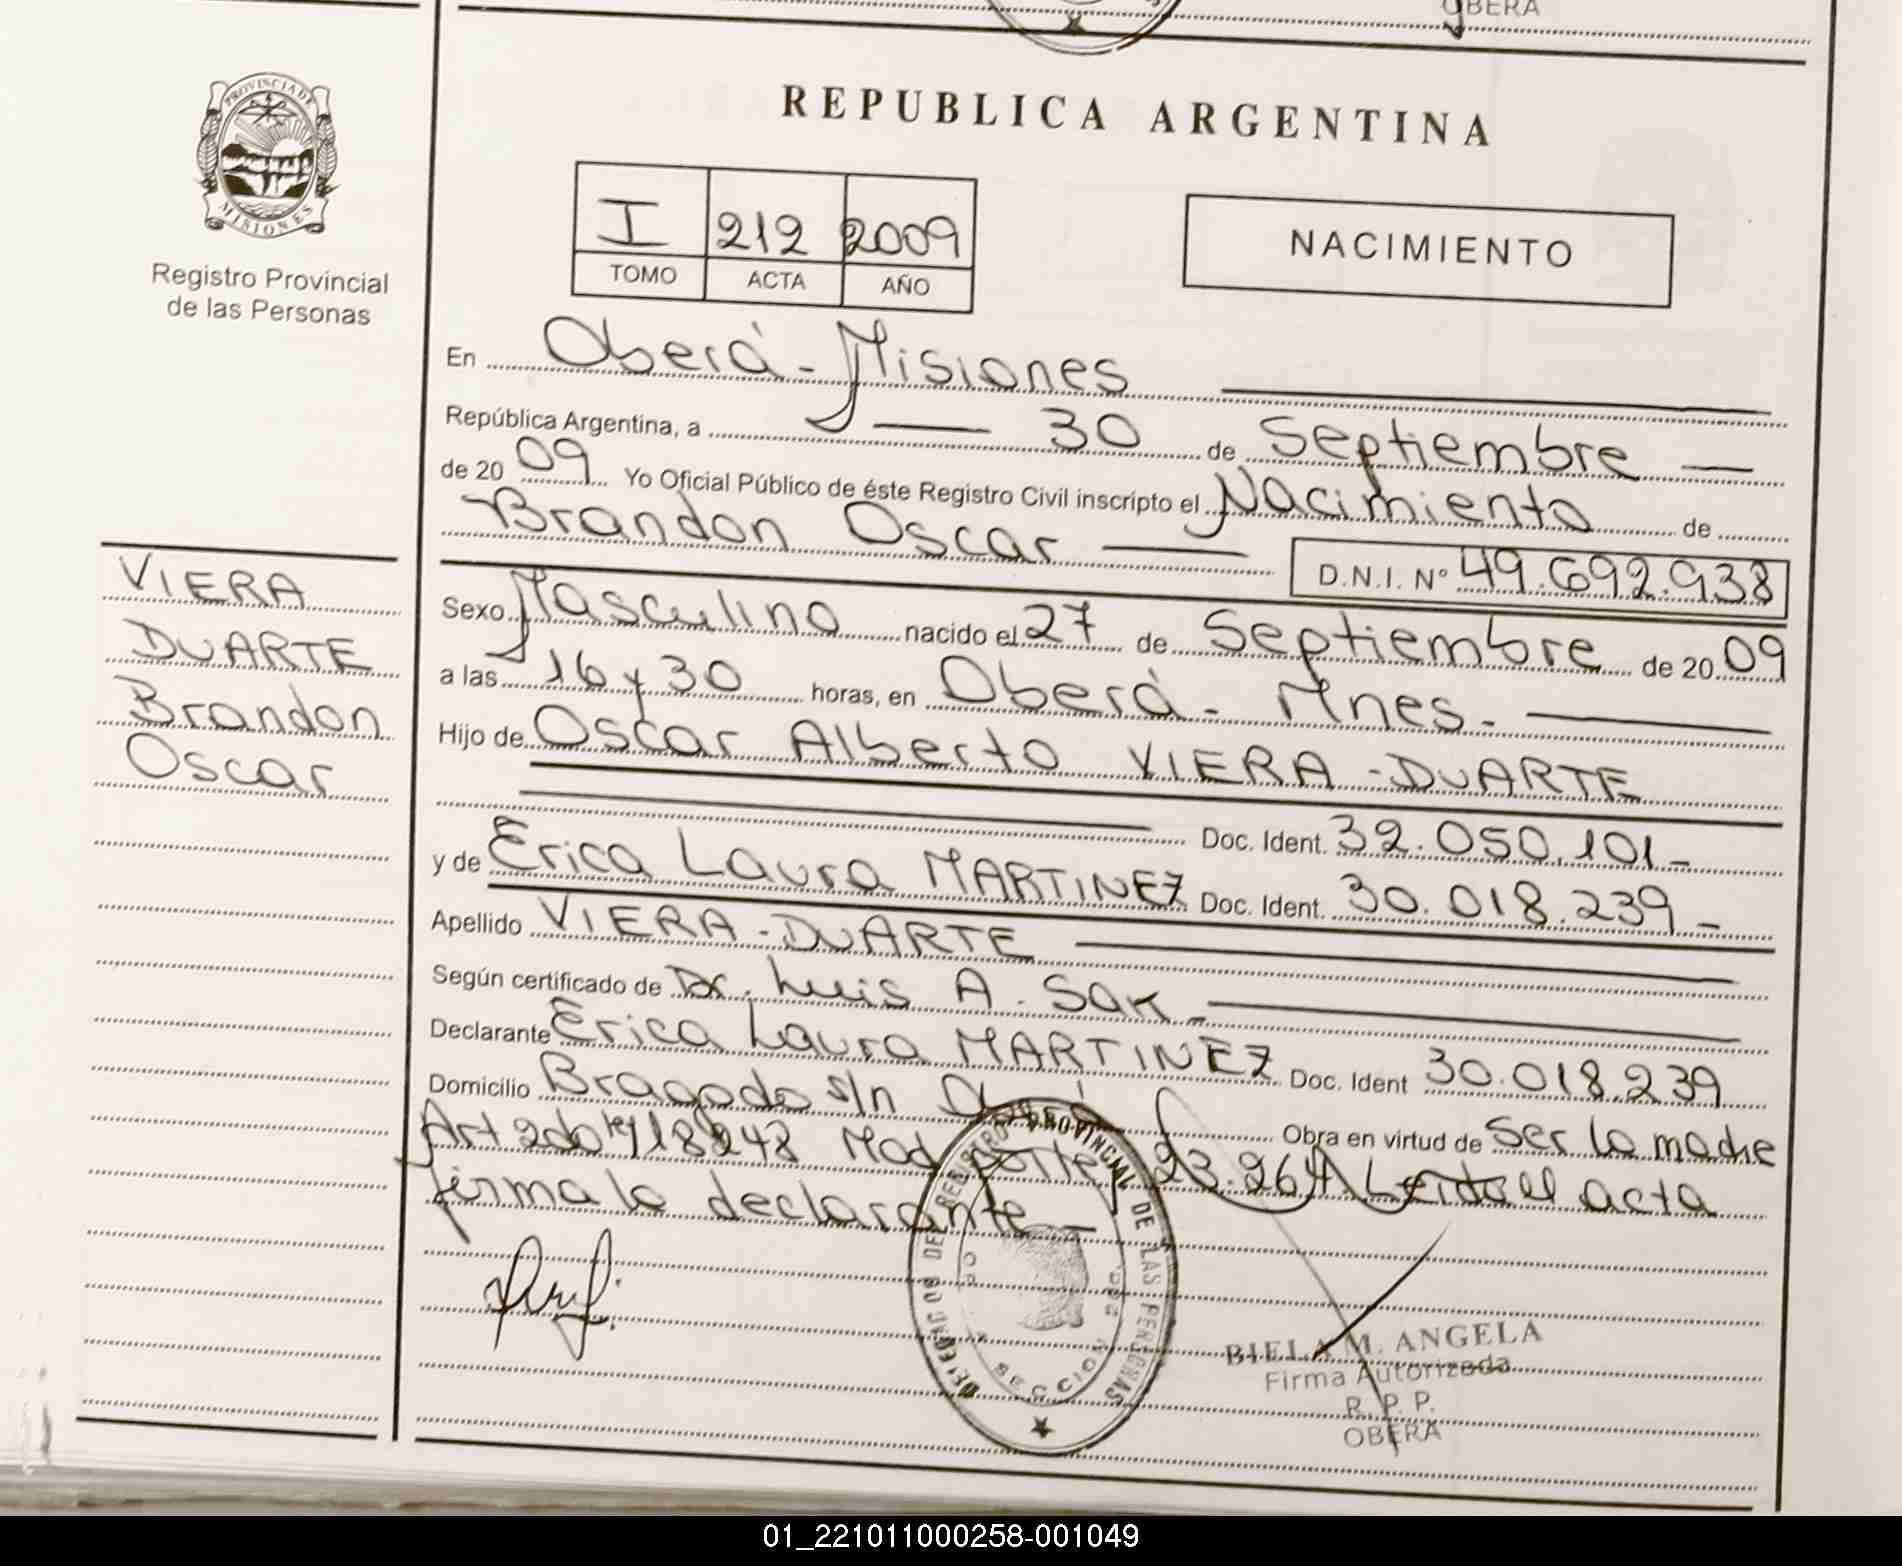 OBERA
REPUBLICA ARGENTINA
PROVINCIA DE
MISIONES
Registro Provincial
de las Personas
I 212 2009
TOMO ACTA AÑO
NACIMIENTO
En Oberá - Misiones
República Argentina, a 30 de Septiembre
de 20 09 Yo Oficial Público de éste Registro Civil inscripto el Nacimiento de
Brandon Oscar D.N.I. Nº 49.692.938
VIERA
DUARTE
Brandon
Oscar
Sexo Masculino nacido el 27 de Septiembre de 20 09
a las 16 y 30 horas, en Oberá - Mnes.
Hijo de Oscar Alberto VIERA - DUARTE
Doc. Ident. 32.050.101 -
y de Erica Laura MARTINEZ Doc. Ident. 30.018.239 -
Apellido VIERA - DUARTE
Según certificado de Dr. Luis A. Sak -
Declarante Erica Laura MARTINEZ Doc. Ident 30.018.239
Domicilio Bragado s/n Obra en virtud de Ser la madre
Art 2do ley 18248 Mod 23.264 Leida el acta
firma la declarante -
DE REGISTRO PROVINCIAL DE LAS PERSONAS
SECCION
BIELA M. ANGELA
Firma Autorizada
R. P. P.
OBERA
01_221011000258-001049